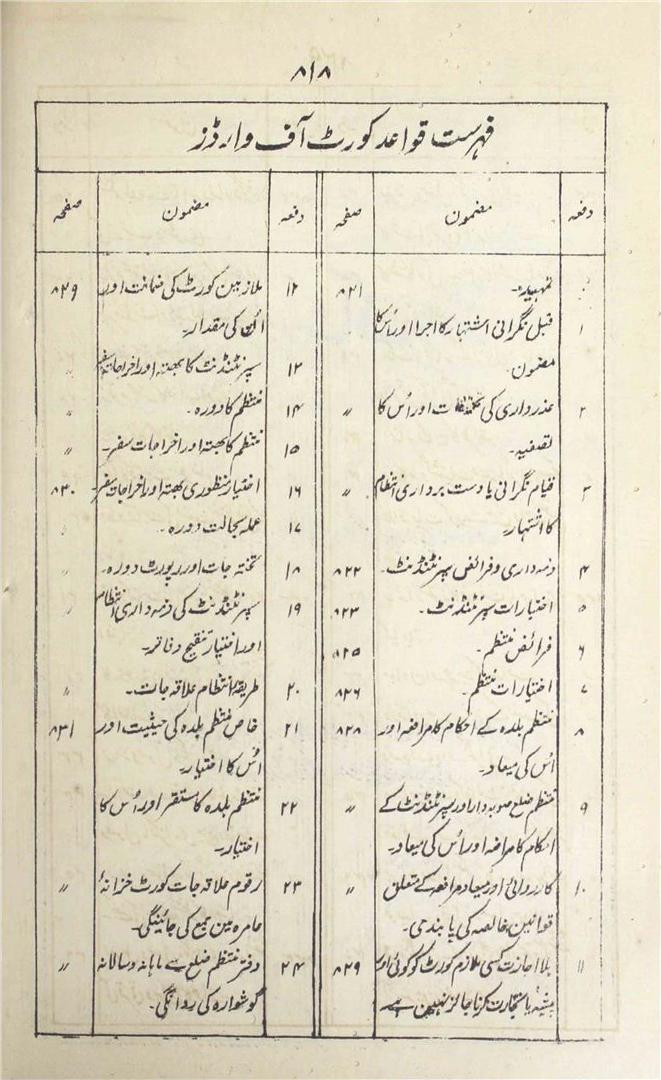 ۸۱۸
فہرست قواعد کورٹ آف وارڈز
دفعہ مضمون صفحہ
تمہید۔ ۸۲۱
۱ قبل نگرانی اشتہار کا اجرا اور اُس کا
مضمون۔
۲ عذرداری کی تحقیقات اور اُس کا 〃
تصفیہ۔
۳ قیام نگرانی یا دست برداری انتظام 〃
کا اشتہار۔
۴ ذمہ داری و فرائض سپرنٹنڈنٹ۔ ۸۲۲
۵ اختیارات سپرنٹنڈنٹ۔ ۸۲۳
۶ فرائض منتظم۔ ۸۲۵
۷ اختیارات منتظم۔ ۸۲۶
۸ منتظم بلدہ کے احکام کا مرافعہ اور ۸۲۸
اُس کی میعاد۔
۹ منتظم ضلع صوبہ دار اور سپرنٹنڈنٹ کے 〃
احکام کا مرافعہ اور اُس کی میعاد۔
۱۰ کارروائی اور میعاد مرافعہ کے متعلق 〃
قوانین خالصہ کی پابندی۔
۱۱ بلا اجازت کسی ملازم کورٹ کو کوئی اور ۸۲۹
پیشہ یا تجارت کرنا جائز نہین ہے
دفعہ مضمون صفحہ
۱۲ ملازمین کورٹ کی ضمانت اور ۸۲۹
اُس کی مقدار۔
۱۳ سپرنٹنڈنٹ کا بھتہ اور اخراجات سفر 〃
۱۴ منتظم کا دورہ۔ 〃
۱۵ منتظم کا بھتہ اور اخراجات سفر۔ 〃
۱۶ اختیار منظوری بھتہ اور اخراجات سفر۔ ۸۳۰
۱۷ عملہ بحالت دورہ۔ 〃
۱۸ تختہ جات اور رپورٹ دورہ۔ 〃
۱۹ سپرنٹنڈنٹ کی ذمہ داری انتظام 〃
اور اختیار تنقیح دفاتر۔
۲۰ طریقہ انتظام علاقہ جات۔ 〃
۲۱ خاص منتظم بلدہ کی حیثیت اور ۸۳۱
اُس کا اختیار۔
۲۲ منتظم بلدہ کا مستقر اور اُس کا 〃
اختیار۔
۲۳ رقوم علاقہ جات کورٹ خزانۂ 〃
عامرہ مین جمع کی جائینگی۔
۲۴ دفتر منتظم ضلع سے ماہانہ و سالانہ 〃
گوشوارہ کی روانگی۔